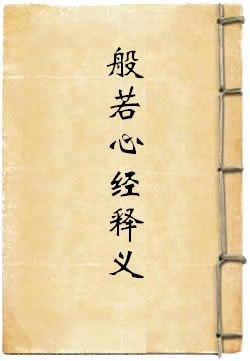 般若心经释义